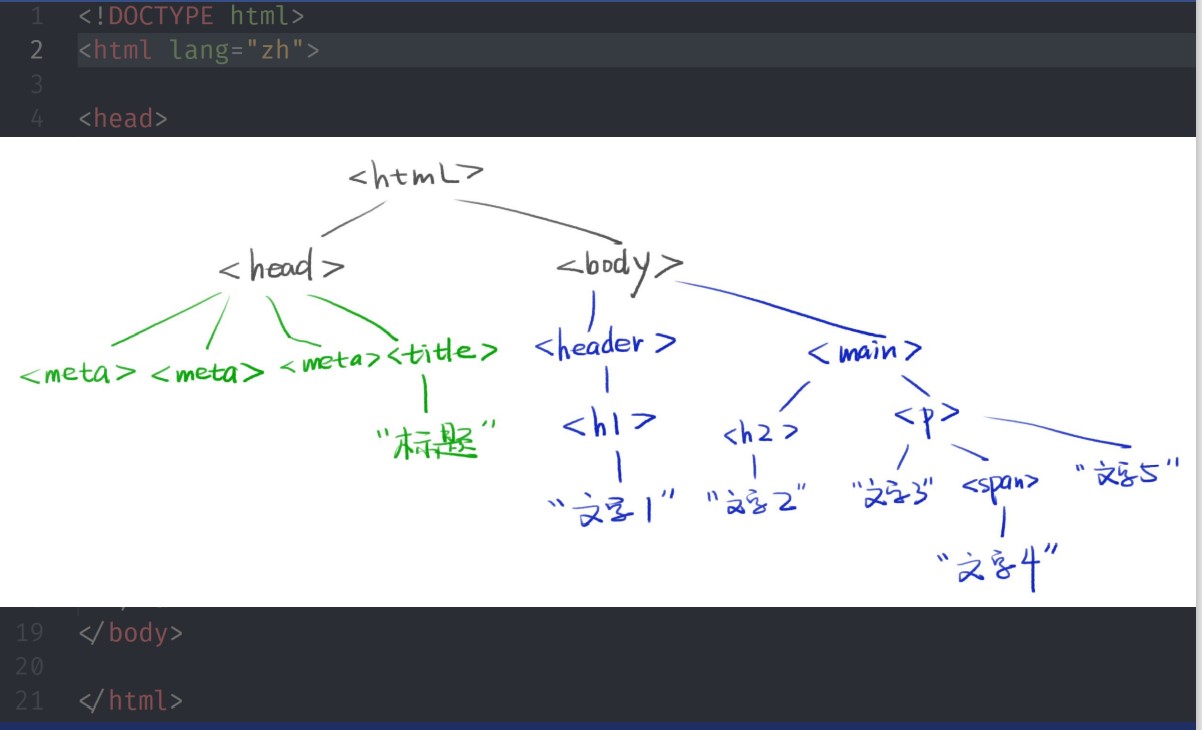 1 <!DOCTYPE html>
2 <html lang="zh">
3
4 <head>
<html>
<head> <body>
<meta> <meta> <meta> <title> <header> <main>
"标题" <h1> <h2> <p>
"文字1" "文字2" "文字3" <span> "文字5"
"文字4"
19 </body>
20
21 </html>